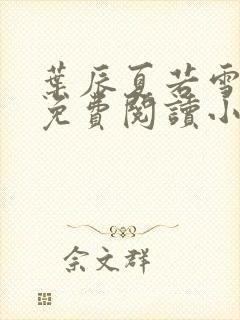 葉辰夏若雪
免費閱讀小
佘文群